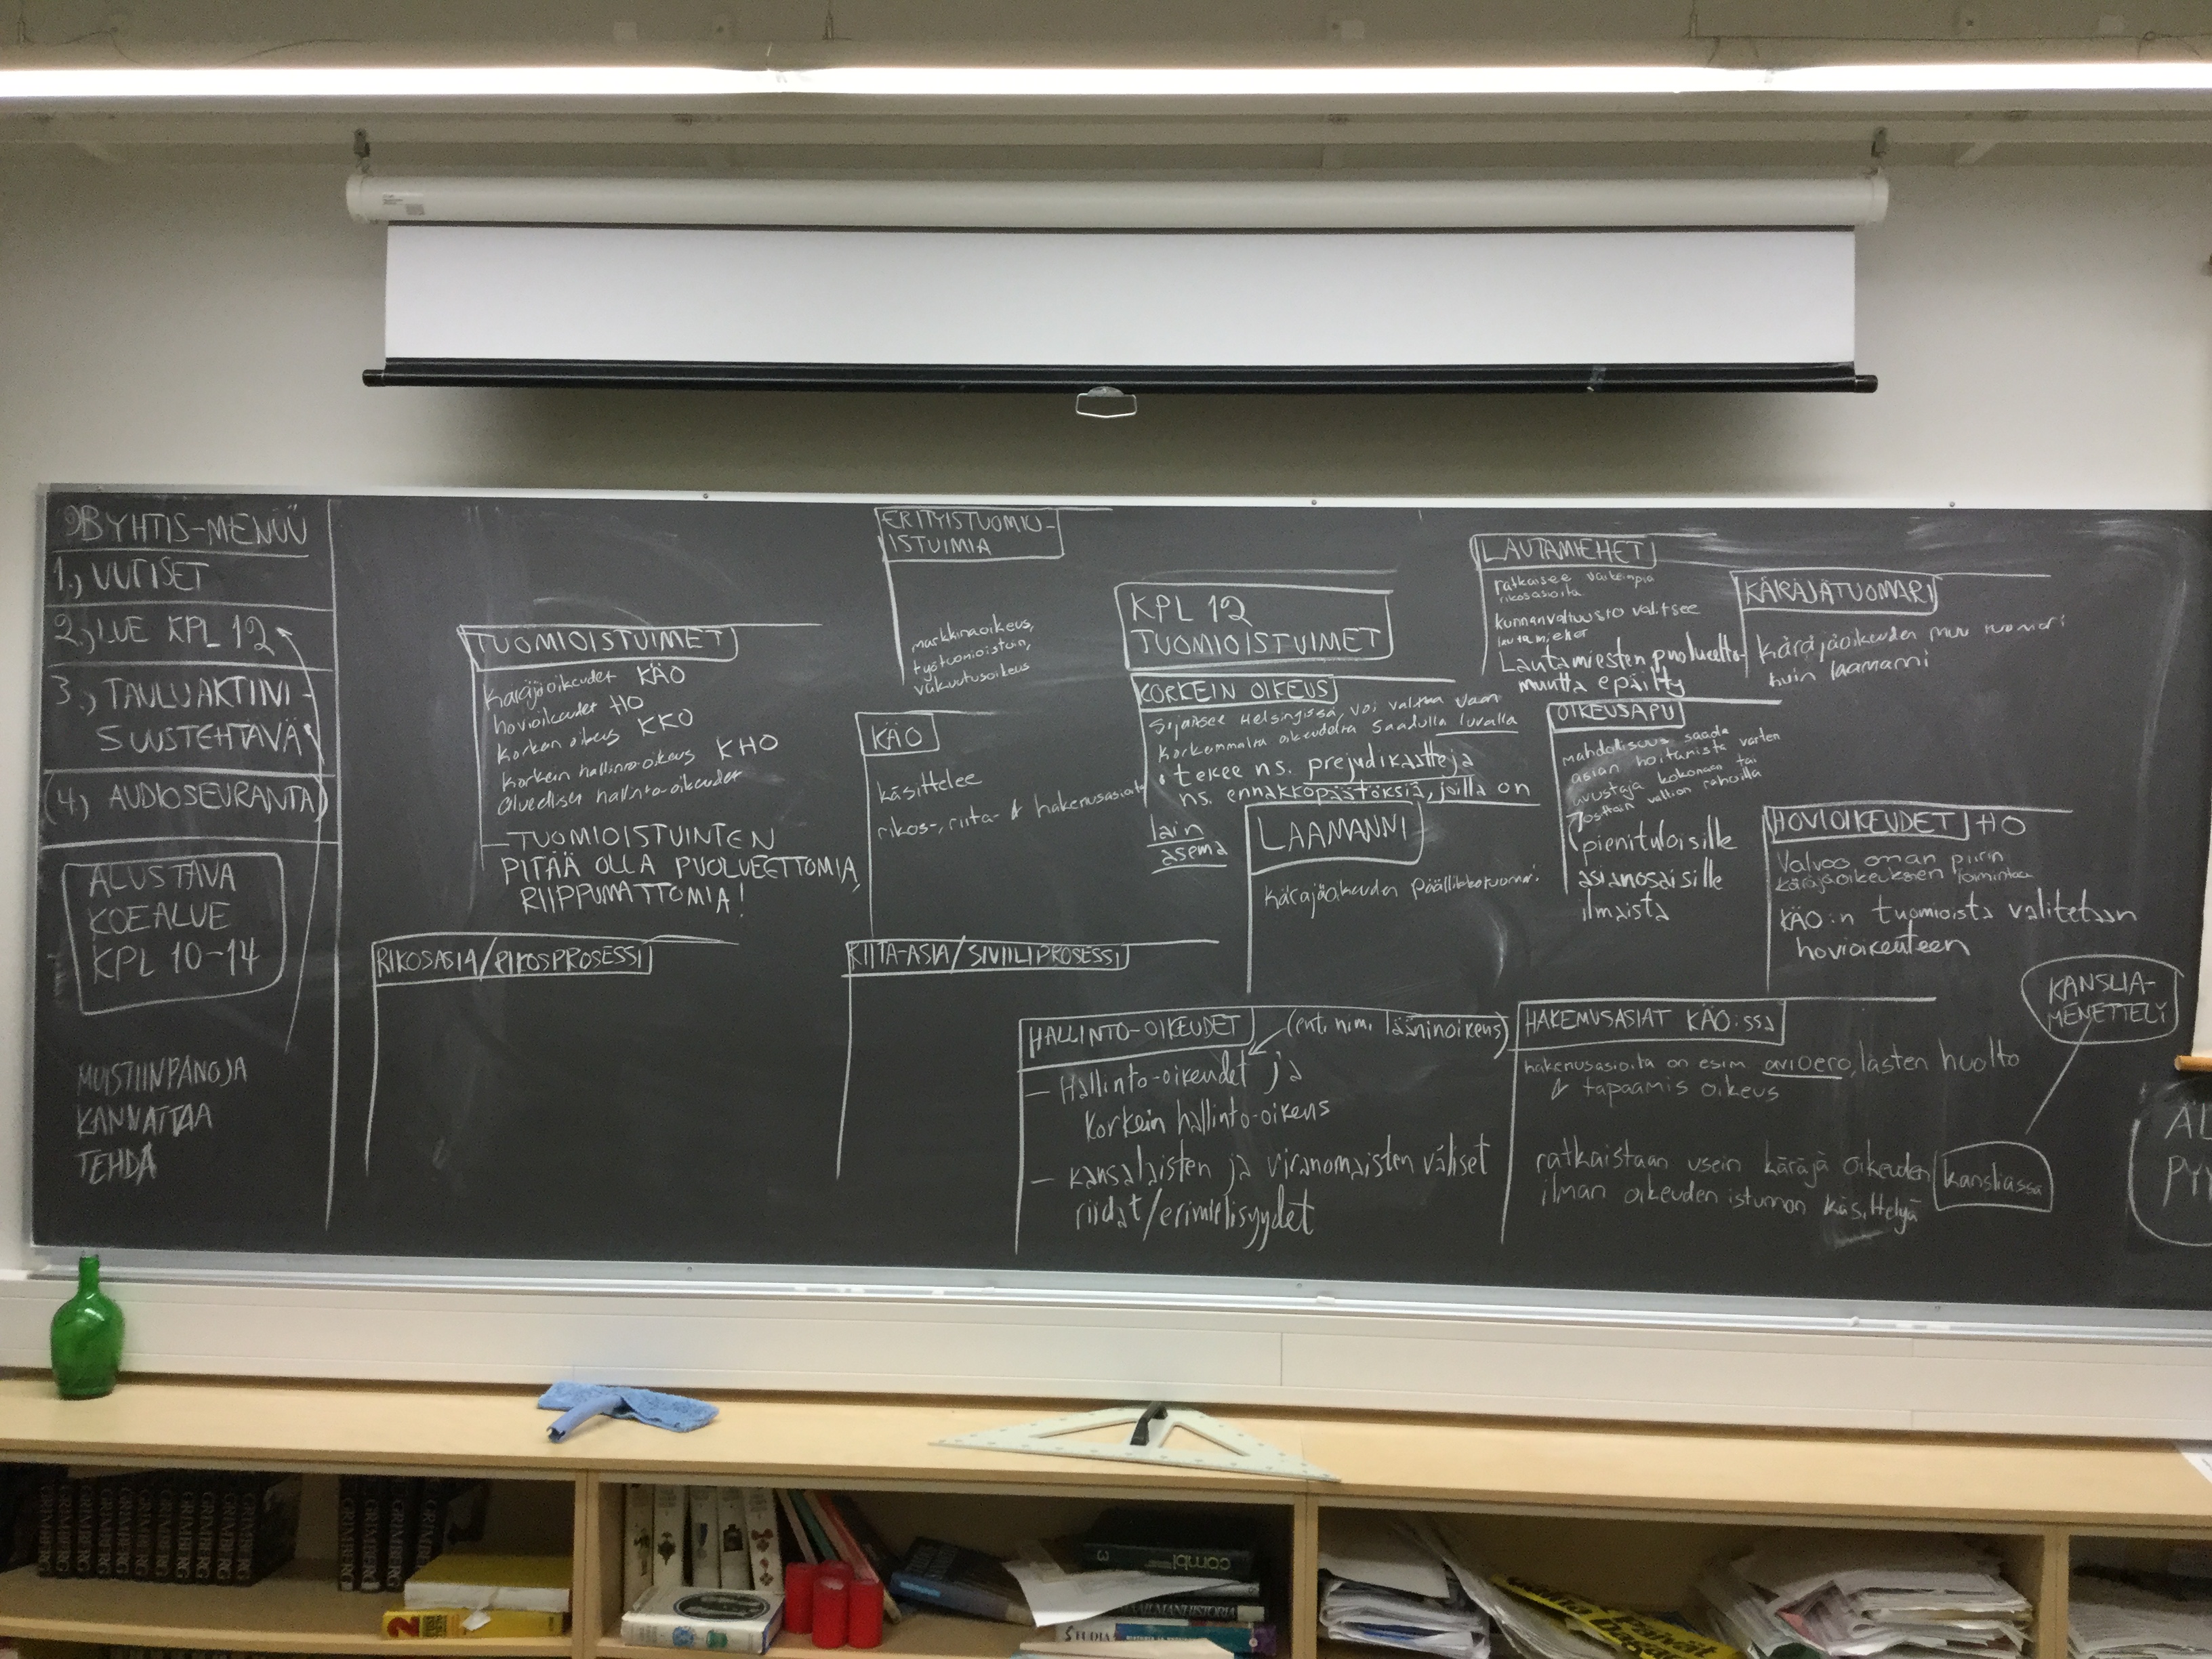 9B YHTIS-MENÜÜ
1., UUTISET
2., LUE KPL 12
3., TAULUAKTIIVI-
SUUSTEHTÄVÄ
(4., AUDIOSEURANTA)
ALUSTAVA
KOEALUE
KPL 10-14
MUISTIINPANOJA
KANNATTAA
TEHDÄ
TUOMIOISTUIMET
käräjäoikeudet KÄO
hovioikeudet HO
korkein oikeus KKO
korkein hallinto-oikeus KHO
alueelliset hallinto-oikeudet
-TUOMIOISTUINTEN
PITÄÄ OLLA PUOLUEETTOMIA,
RIIPPUMATTOMIA!
RIKOSASIA/RIKOSPROSESSI
ERITYISTUOMIO-
ISTUIMIA
markkinaoikeus,
työtuomioistuin,
vakuutusoikeus
KÄO
käsittelee
rikos-, riita- & hakemusasioita
RIITA-ASIA/SIVIILIPROSESSI
KPL 12
TUOMIOISTUIMET
KORKEIN OIKEUS
Sijaitsee Helsingissä, voi valittaa vaan
korkeimmalta oikeudelta saadulla luvalla
• tekee ns. prejudikaatteja
ns. ennakkopäätöksiä, joilla on
lain
asema
LAAMANNI
käräjäoikeuden päällikkötuomari
HALLINTO-OIKEUDET
(ent. nim. lääninoikeus)
- Hallinto-oikeudet ja
korkein hallinto-oikeus
- kansalaisten ja viranomaisten väliset
riidat/erimielisyydet
LAUTAMIEHET
ratkaisee vaikeimpia
rikosasioita
kunnanvaltuusto valitsee
lautamiehet
Lautamiesten puolueetto-
muutta epäilty
KÄRÄJÄTUOMARI
käräjäoikeuden muu tuomari
kuin laamanni
OIKEUSAPU
mahdollisuus saada
asian hoitamista varten
avustaja kokonaan tai
osittain valtion rahoilla
pienituloisille
asianosaisille
ilmaista
HOVIOIKEUDET HO
Valvoo oman piirin
käräjäoikeuksien toimintaa
KÄO:n tuomioista valitetaan
hovioikeuteen
KANSLIA-
MENETTELY
HAKEMUSASIAT KÄO:ssa
hakemusasioita on esim avioero, lasten huolto
& tapaamis oikeus
ratkaistaan usein käräjä oikeuden kansliassa
ilman oikeuden istunnon käsittelyä
AL
PY
GRIMBERG GRIMBERG GRIMBERG GRIMBERG GRIMBERG GRIMBERG GRIMBERG GRIMBERG GRIMBERG GRIMBERG
GRIMBERG GRIMBERG GRIMBERG
2
combi
3
MAAILMANHISTORIA
STUDIA